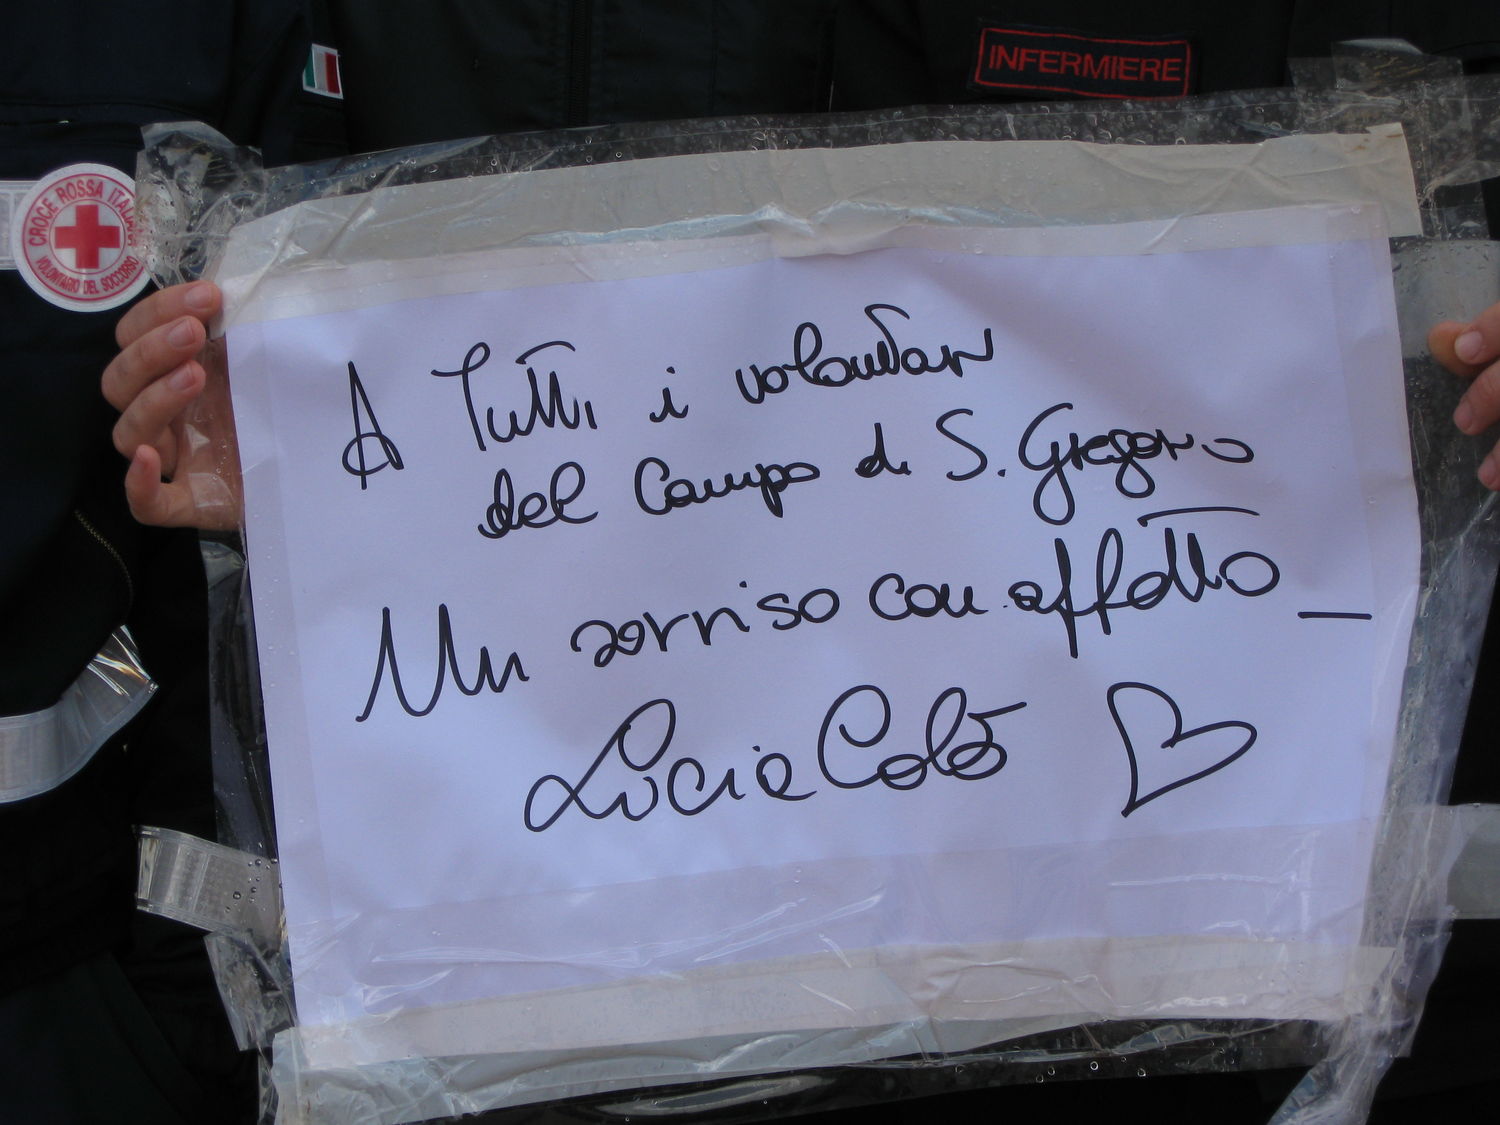 INFERMIERE
CROCE ROSSA ITALIANA
VOLONTARIO DEL SOCCORSO
A Tutti i volontari
del Campo di S. Gregorio
Un sorriso con affetto_
Lucia Colò